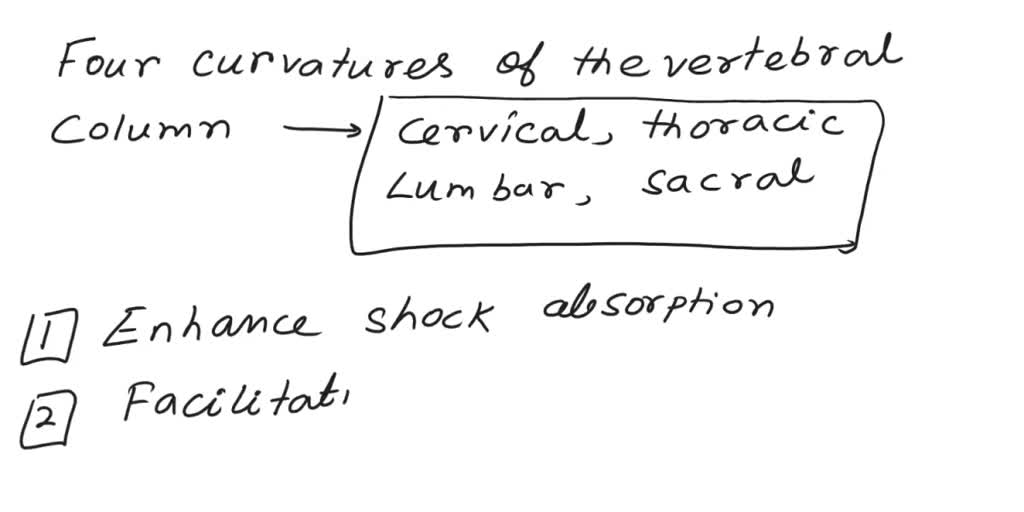 Four curvatures of the vertebral
Column → cervical, thoracic
Lumbar, sacral
1 Enhance shock absorption
2 Facilitati